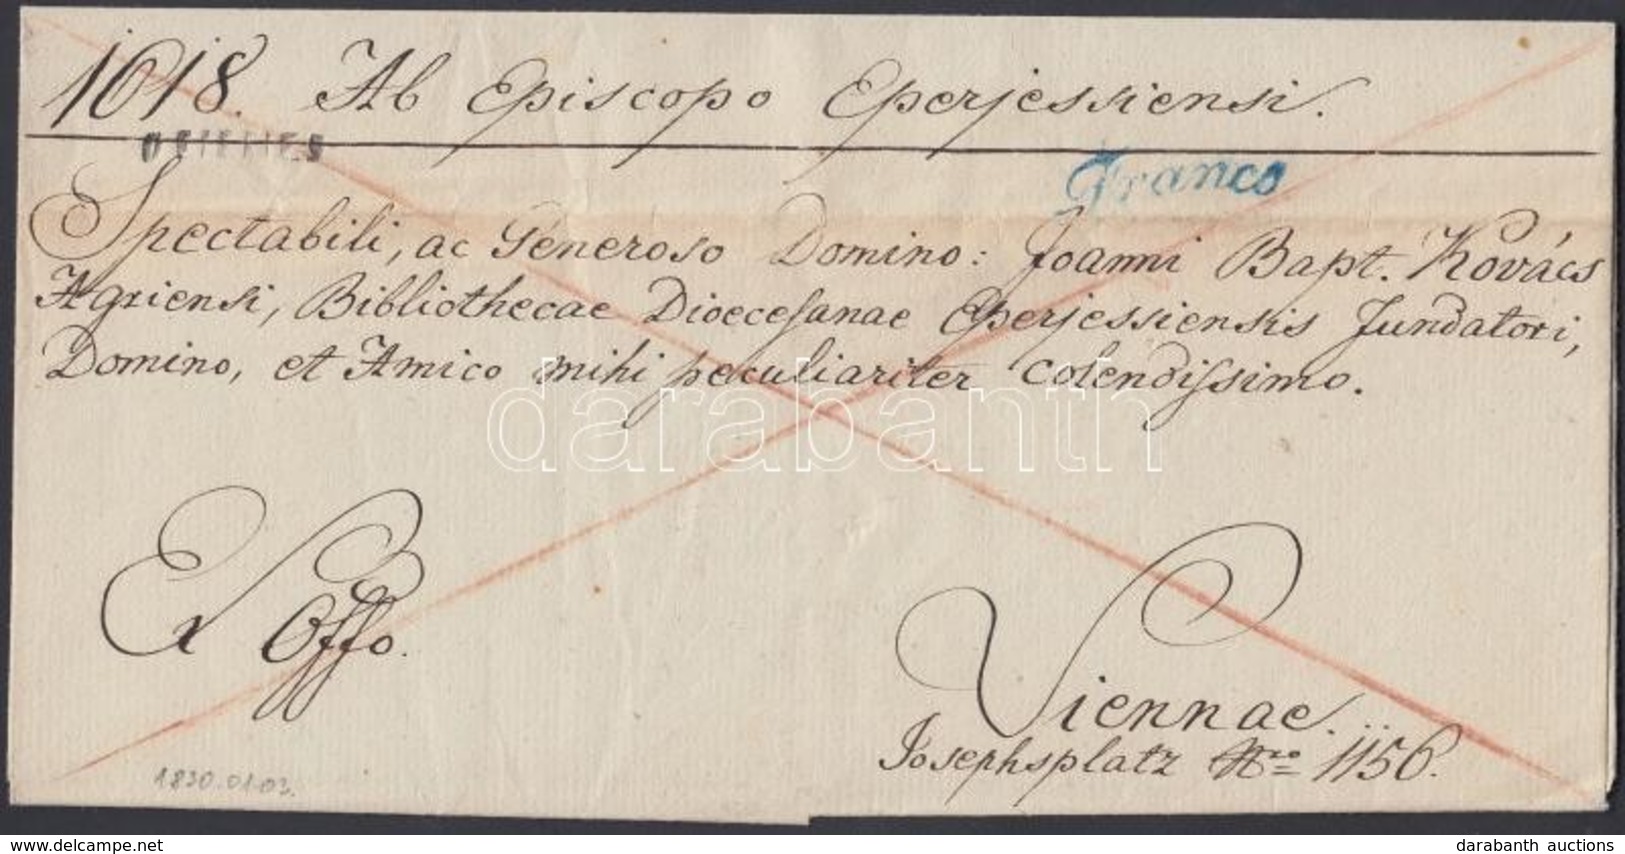 1618. Ab Episcopo Eperjessiensi.
Franco
Spectabili, ac Generoso Domino: Joanni Bapt. Kovács
Agriensi, Bibliothecae Dioecesanae Eperjessiensis Fundatori,
Domino, et Amico mihi peculiariter colendissimo.
darabanth
Ex Offo.
Viennae.
Josephsplatz Nro 1156.
1830.01.03.
www.delcampe.net
darabanth auctions